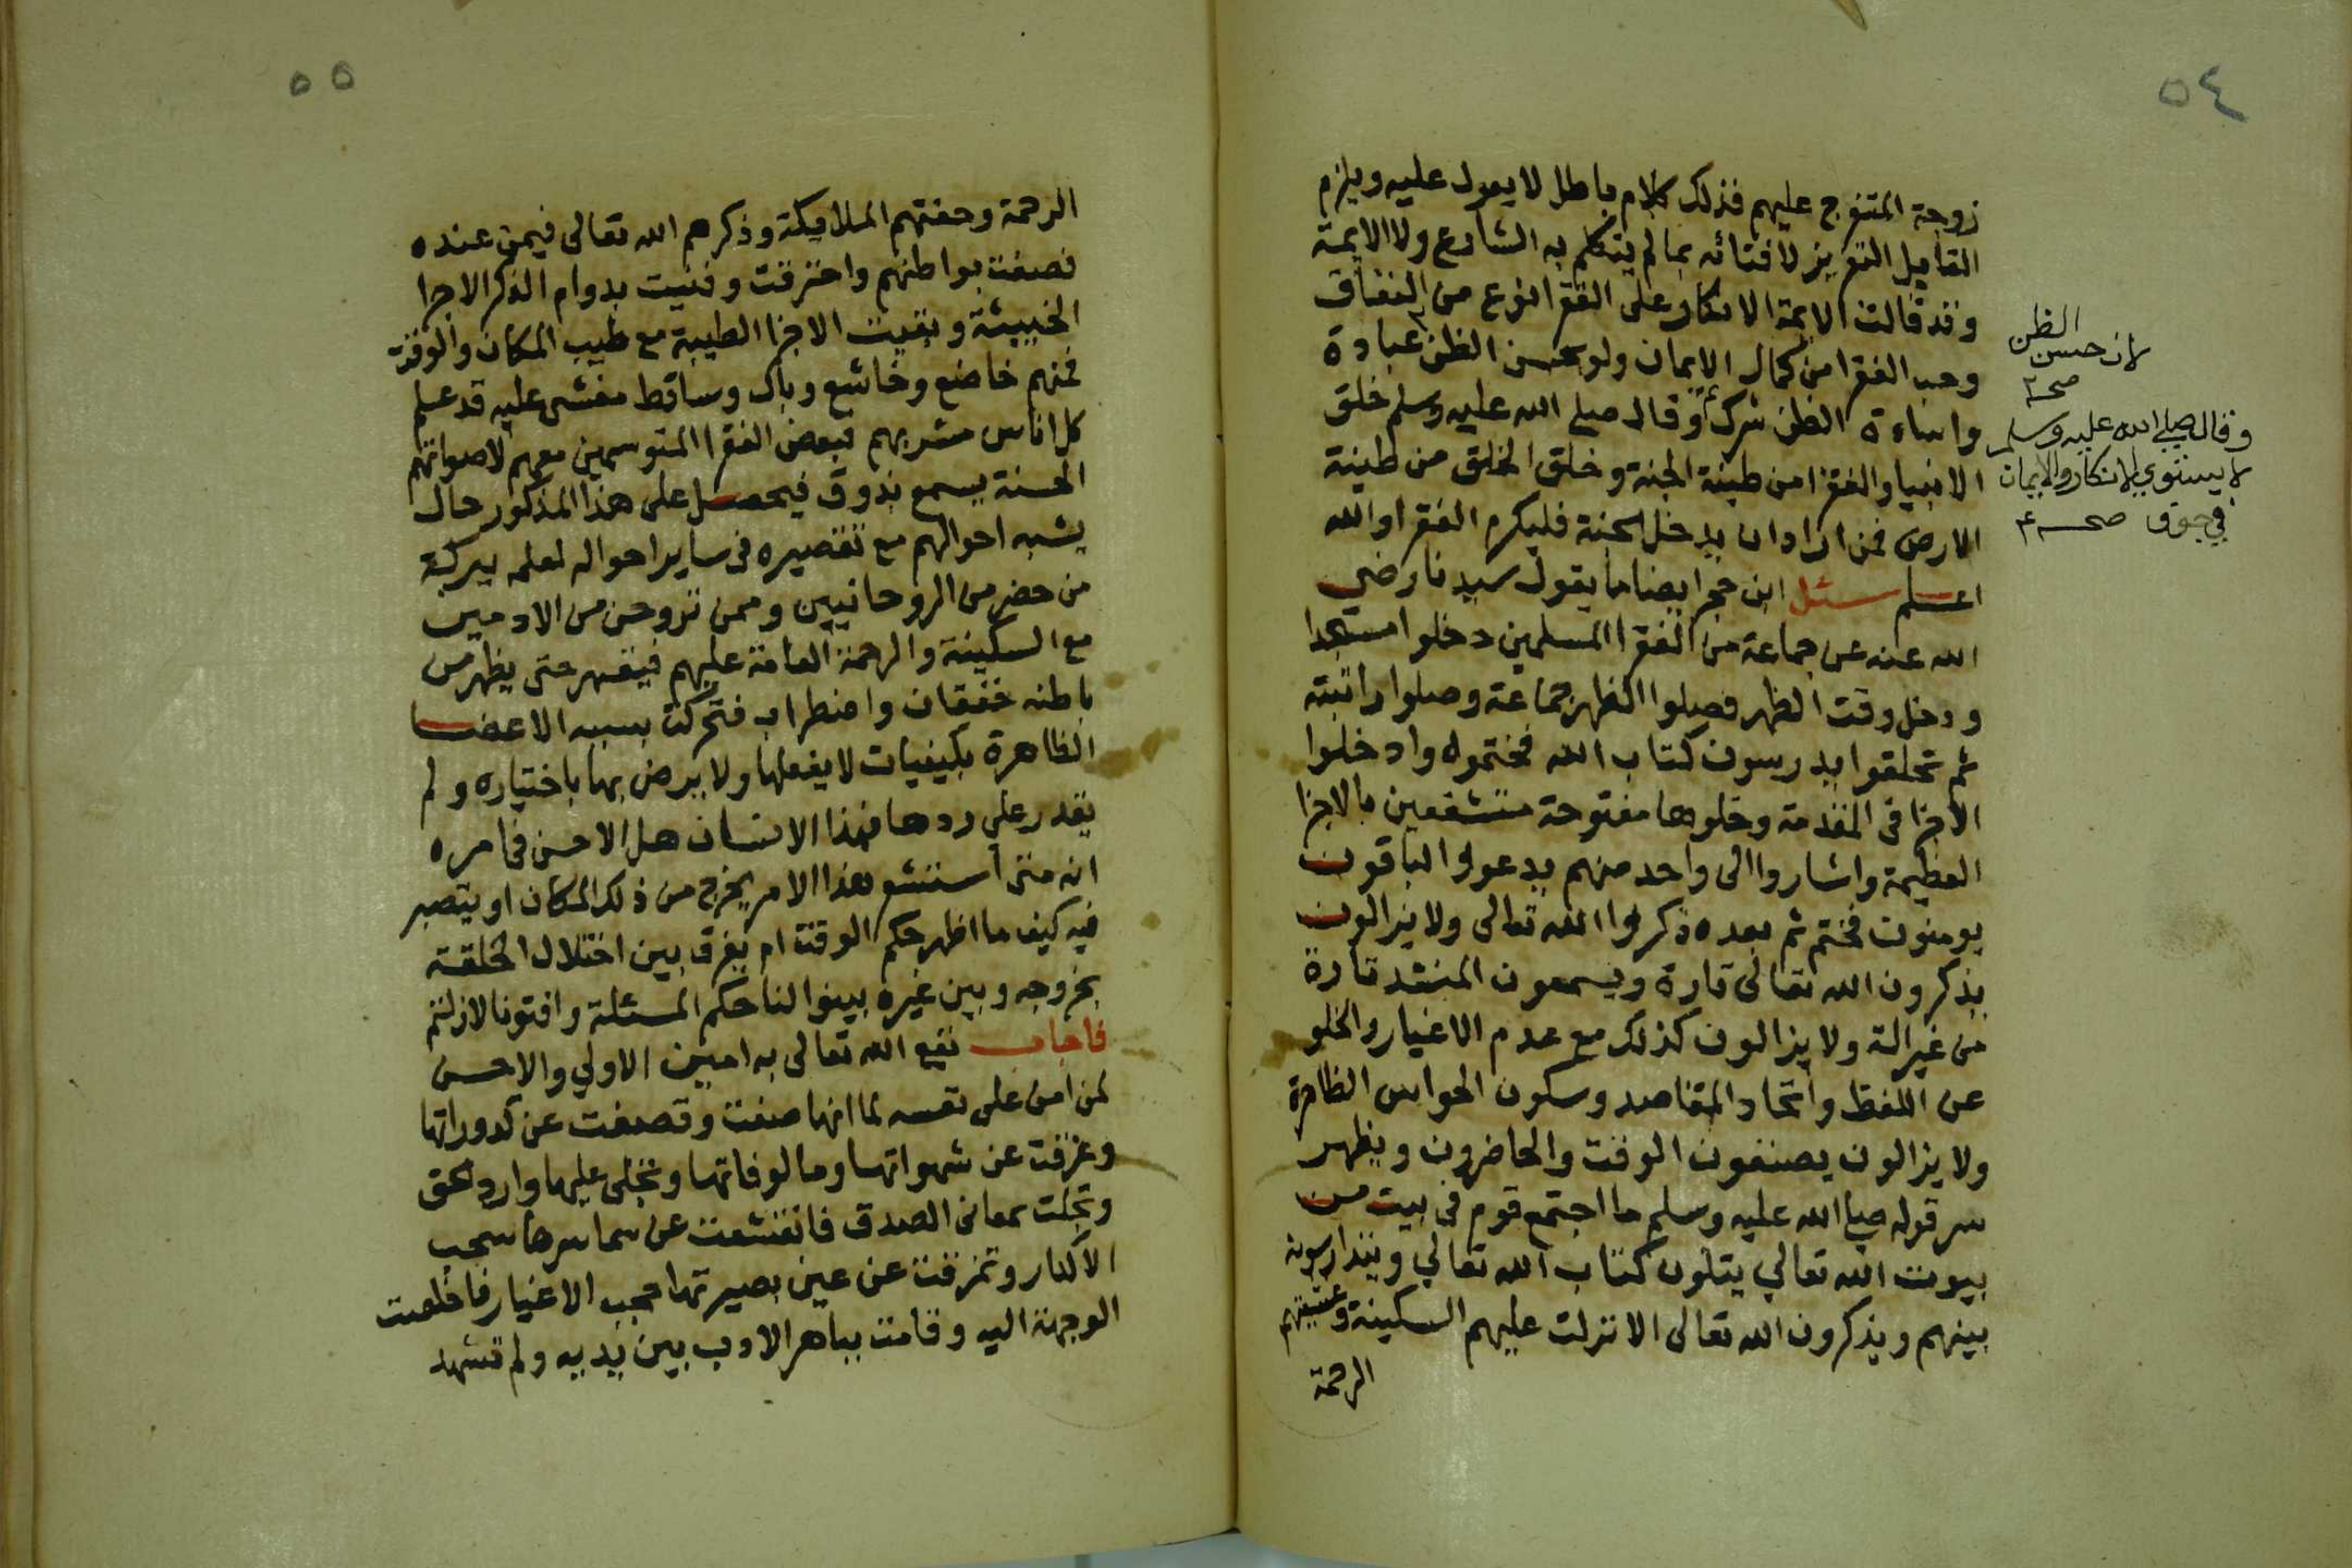 ٥٤
زوجة المتفرج عليهم فذلك كلام باطل لا يعول عليه ويلزم
القايل التعزير لافتائه بما لم يتكلم به الشارع ولا الايمة
وقد قالت الايمة الانكار على الفقرا نوع من النفاق
وحب الفقرا من كمال الايمان ولو بحسن الظن عبادة
واساءة الظن شرك وقال صلى الله عليه وسلم خلق
الانبيا والفقرا من طينة الجنة وخلق الخلق من طينة
الارض فمن اراد ان يدخل الجنة فليكرم الفقرا والله
اعلم سئل ابن حجر ايضا ما يقول سيدنا رضي
الله عنه عن جماعة من الفقرا المسلمين دخلوا مسجدا
ودخل وقت الظهر فصلوا الظهر جماعة وصلوا راتبته
ثم تحلقوا يدرسون كتاب الله فختموه وادخلوا
الاجزا في المقدمة وخلوها مفتوحة متشفعين بالاجزا
العظيمة واشاروا الى واحد منهم يدعو والباقون
يومنون فختم ثم بعده ذكروا الله تعالى ولا يزالون
يذكرون الله تعالى تارة ويسمعون المنشد تارة
من غير الة ولا يزالون كذلك مع عدم الاغيار والخلو
عن اللغط واتحاد المقاصد وسكون الحواس الظاهرة
ولا يزالون يصتفون الوقت والحاضرون ويظهر
سر قوله صلى الله عليه وسلم ما اجتمع قوم في بيت من
بيوت الله تعالي يتلون كتاب الله تعالي ويتدارسونه
بينهم ويذكرون الله تعالى الا نزلت عليهم السكينة وغشيتهم
الرحمة
لان حسن الظن
صحـ
وقال صلى الله عليه وسلم
لا يستوي الانكار والايمان
في جوف صحـ
٥٥
الرحمة وحفتهم الملايكة وذكرهم الله تعالى فيمن عنده
فصفت بواطنهم واحترقت وفنيت بدوام الذكر الاجزا
الخبيثة وبقيت الاجزا الطيبة مع طيب المكان والوقت
فمنهم خاضع وخاشع وباك وساقط مغشى عليه قد علم
كل اناس مشربهم فبعض الفقرا المتوسمين معهم لاصواتهم
الحسنة يسمع بذوق فيحصل على هذا المذكور حال
يشبه احوالهم مع تقصيره في ساير احواله لعلمه ببركة
من حضر من الروحانيين وممن تروحن من الادميين
مع السكينة والرحمة العامة عليهم فيقهر حتى يظهر من
باطنه خفقان واضطراب فتحركت بسببه الاعضا
الظاهرة بكيفيات لا يفعلها ولا يرض بها باختياره ولم
يقدر على ردها فهذا الانسان هل الاحسن في امره
انه متى استشعر هذا الامر يخرج من ذلك المكان او يتصبر
فيه كيف ما اظهر حكم الوقت ام يفرق بين اختلال الحلقة
بخروجه وبين غيره بينوا لنا حكم المسئلة وافتونا لازلتم
فاجاب نفع الله تعالى به امين الاولي والاحسن
لمن امن على نفسه لما انها صفت وتصفت عن كدوراتها
وعزفت عن شهواتها ومالوفاتها وتجلى عليها وارد الحق
وتجلت بمعانى الصدق فانقشعت عن سما سرها سحب
الاكدار وتمزقت عن عين بصيرتها حجب الاغيار فاخلصت
الوجهة اليه وقامت بباهر الادب بين يديه ولم تشهد